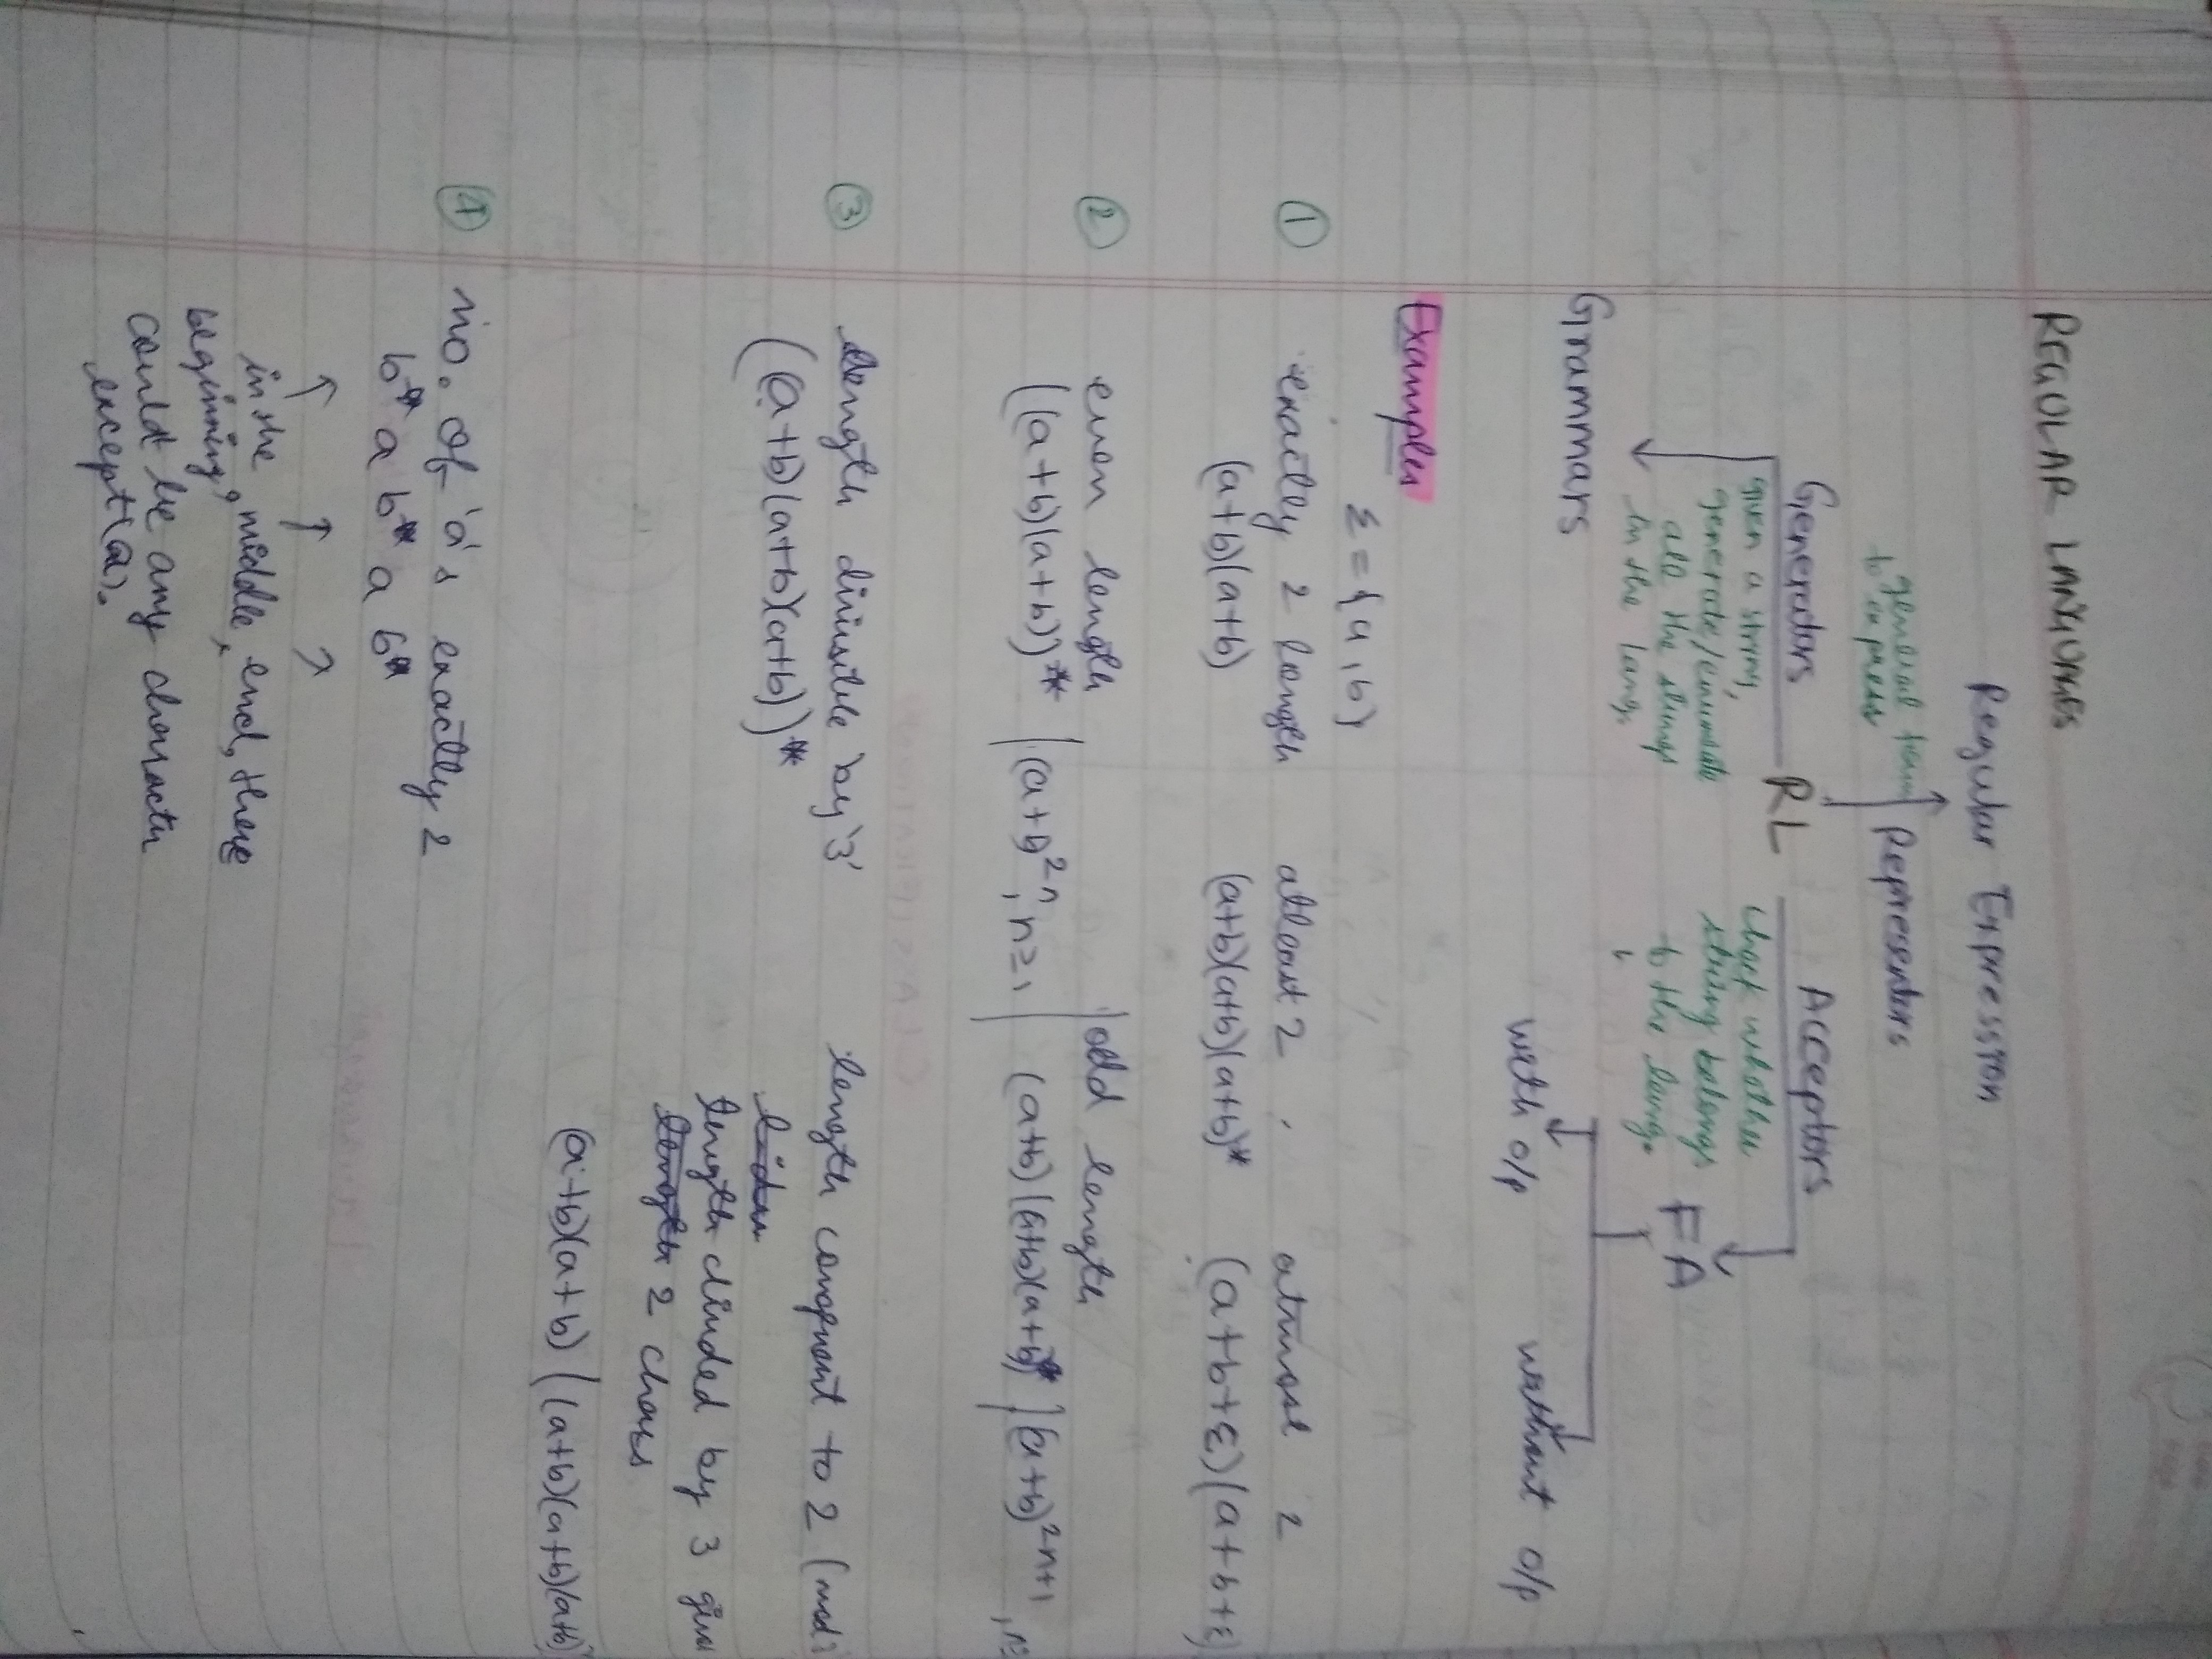 REGULAR LANGUAGES
Regular Expression
general term
to express
Representers
Generators
RL
Acceptors
given a string,
generate/enumerate
all the strings
in the lang.
check whether
string belongs
to the lang.
Grammars
FA
with o/p
without o/p
Examples
Σ = {a, b}
① exactly 2 length atleast 2, atmost 2
(a+b)(a+b) (a+b)(a+b)(a+b)* (a+b+ε)(a+b+ε)
② even length | odd length
((a+b)(a+b))* | (a+b)²ⁿ, n≥1 | (a+b)((a+b)(a+b)* | (a+b)²ⁿ⁺¹, n≥
③ length divisible by '3' length congruent to 2 (mod 3
((a+b)(a+b)(a+b))*
length divided by 3 gives
length 2 chars
(a+b)(a+b) ((a+b)(a+b)(a+b)
④ no. of 'a's exactly 2
b* a b* a b*
↑ ↑ ↑
in the
beginning, middle, end, there
could be any character
except (a).